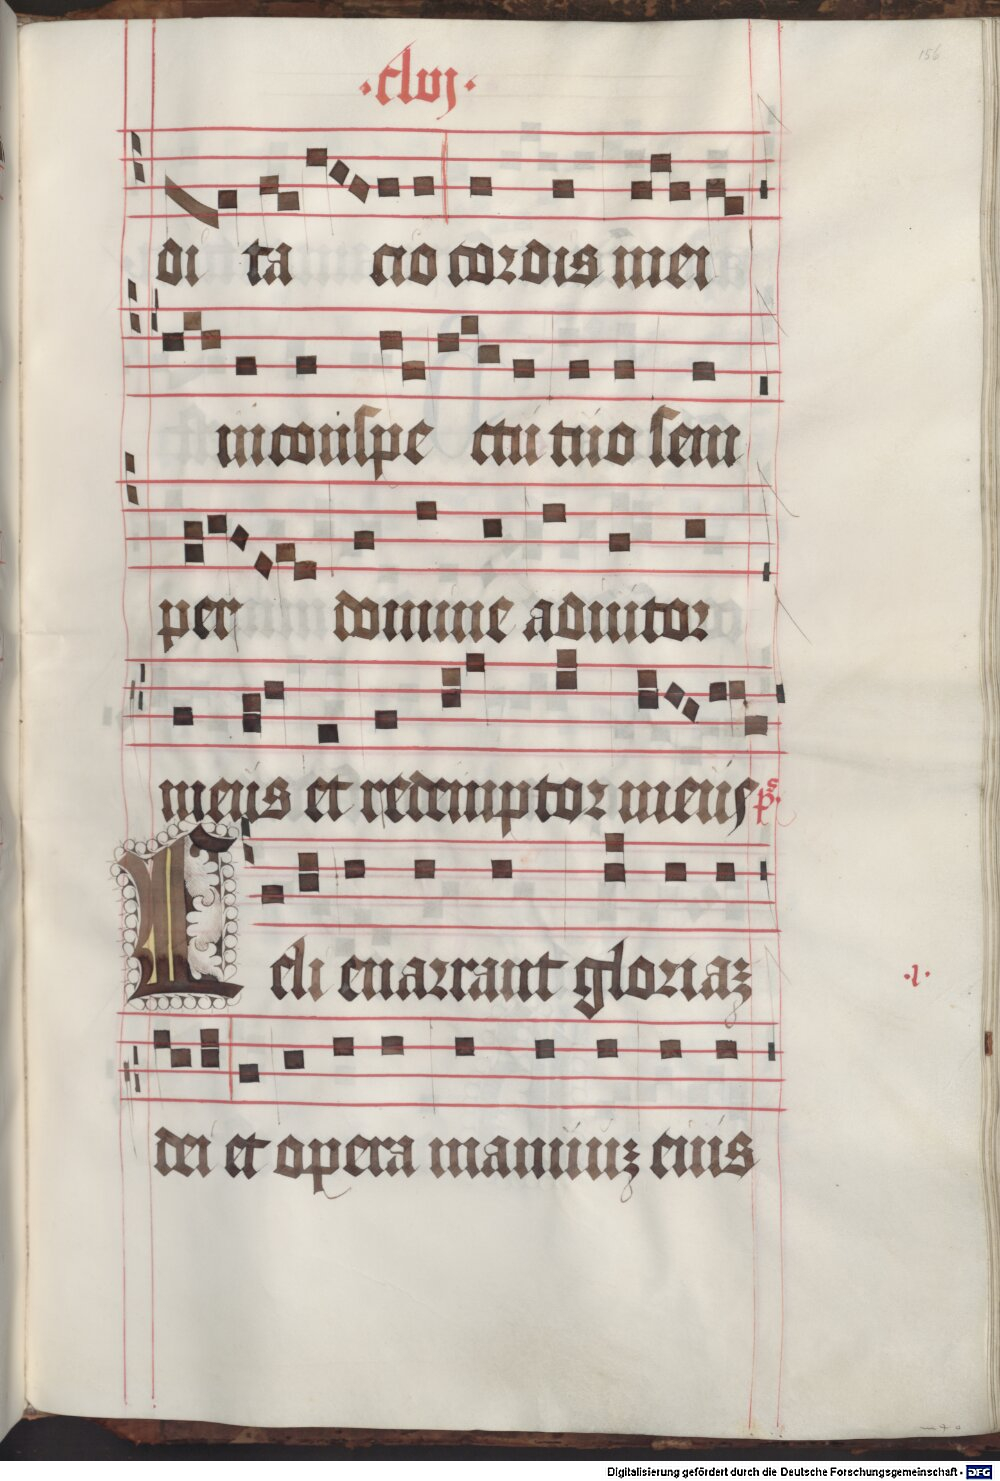 ·clvj·
156
di ta cio cordis mei
in conspe ctu tuo sem
per domine adiutor
meus et redemptor meus ps.
Celi enarrant gloriaz
·l·
dei et opera manuuz eius
Digitalisierung gefördert durch die Deutsche Forschungsgemeinschaft - DFG